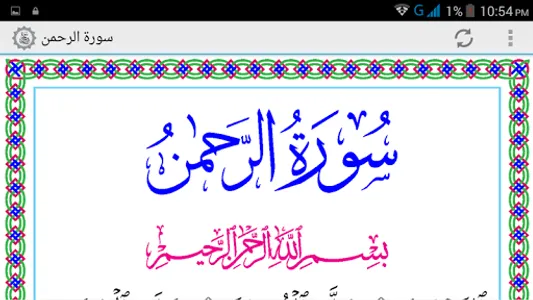 1% 10:54 PM
سورة الرحمن
سُورَةُ الرَّحْمٰنُ
بِسْمِ اللَّهِ الرَّحْمٰنِ الرَّحِيمِ